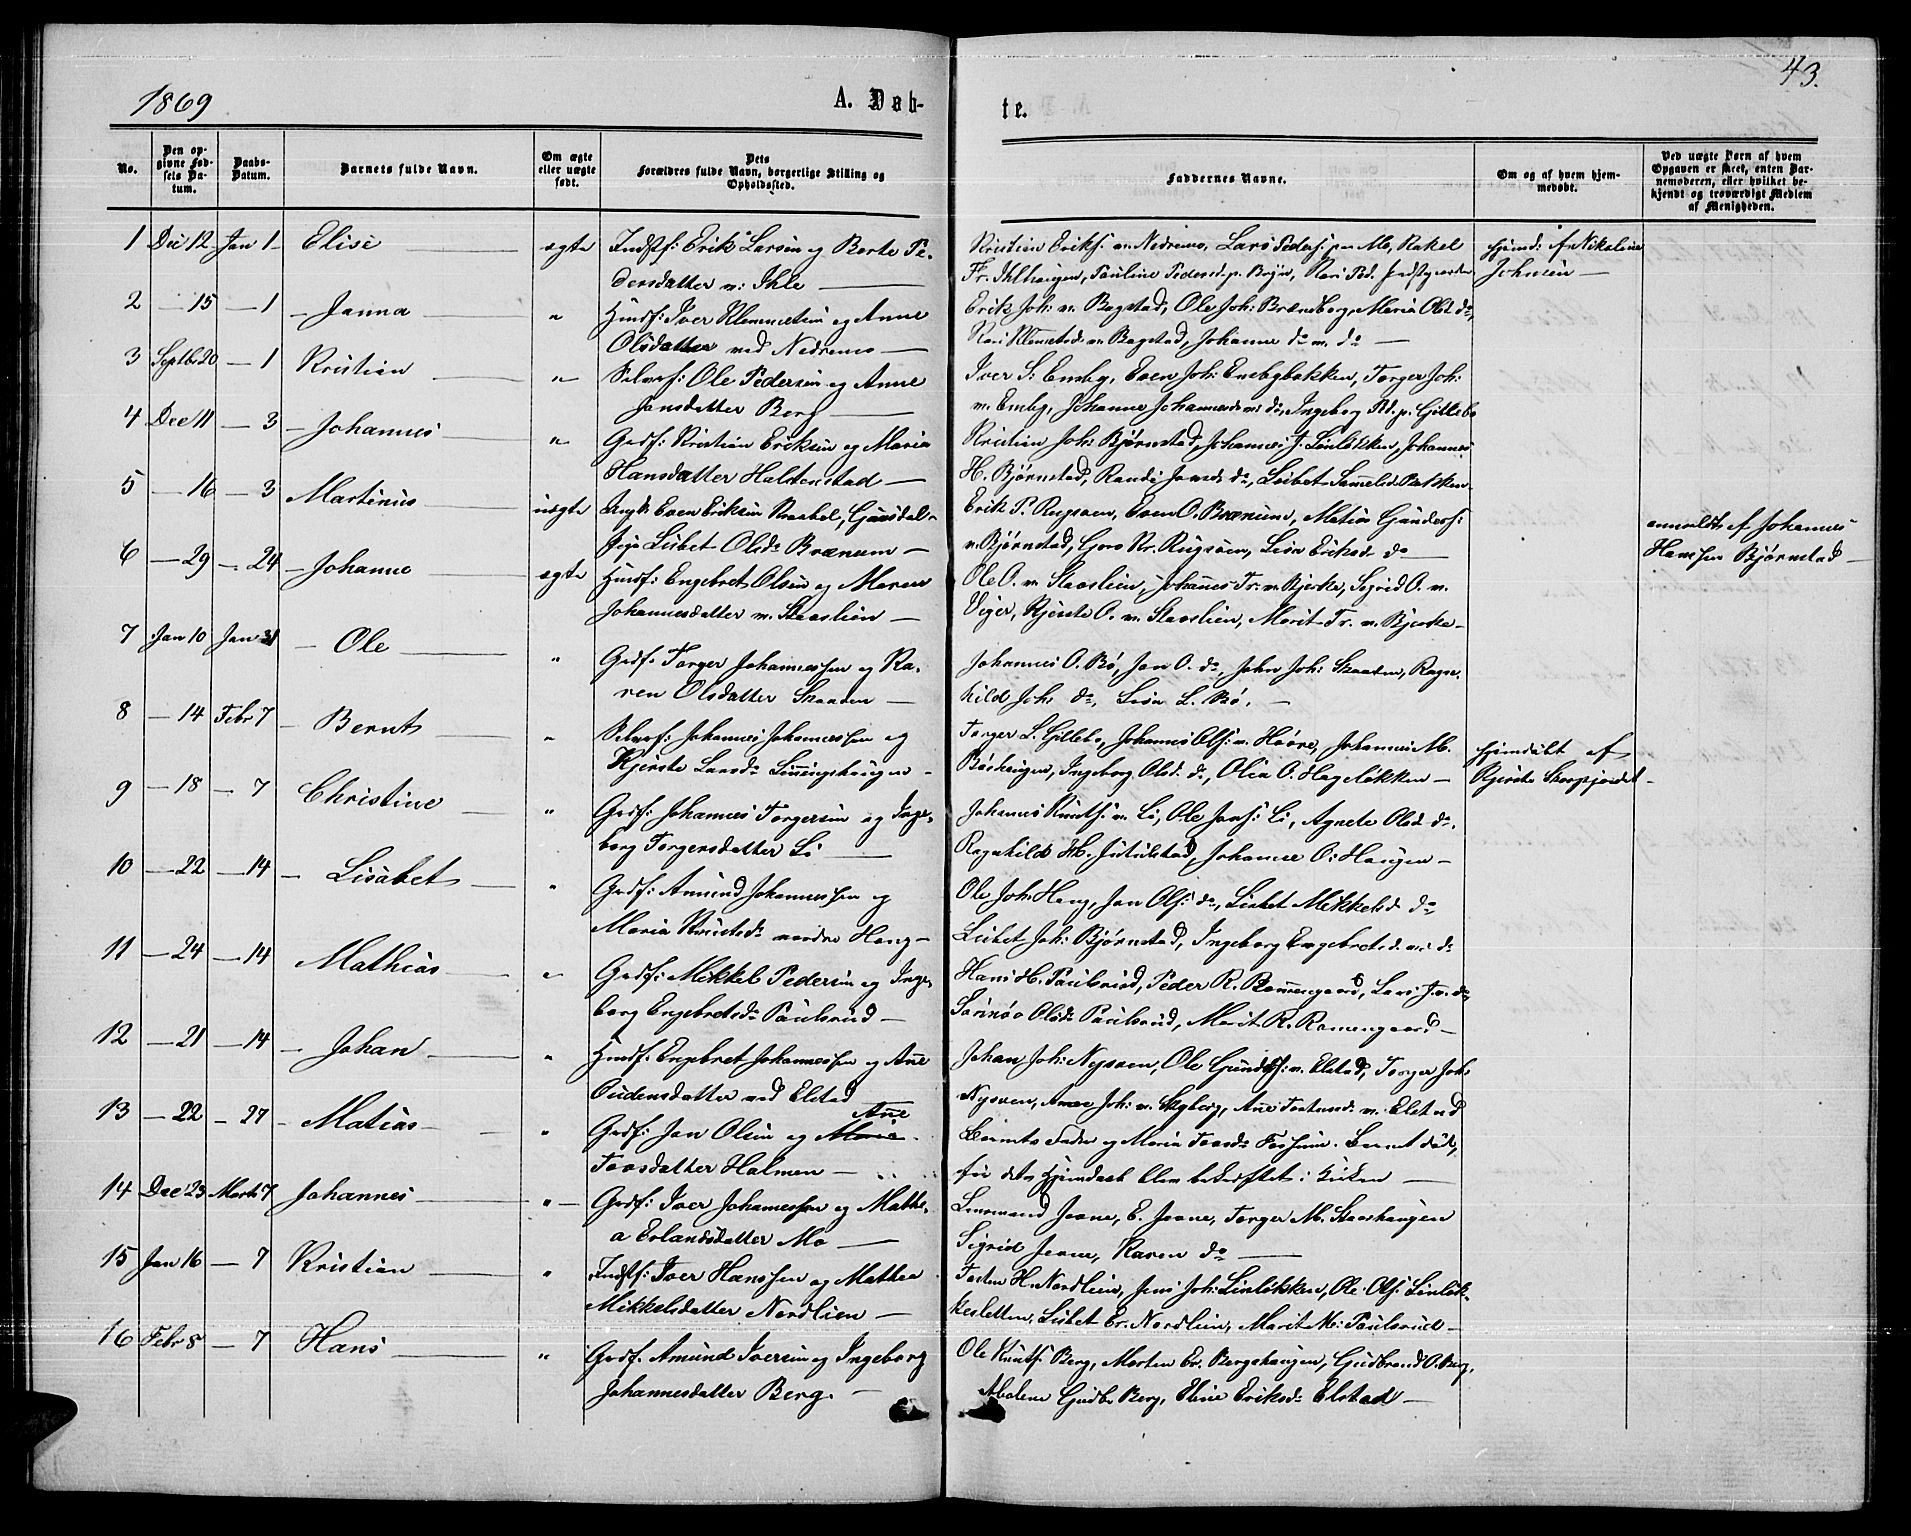 1869
A. Døb-
te.
43.
No.
Den op-
givne Fød-
sels Da-
tum.
Daabs-
Datum.
Barnets fulde Navn.
Om ægte
eller uægte
født.
Dets
Forældres fulde Navn, borgerlige Stilling og
Opholdssted.
Faddernes Navne.
Om og af hvem hjem-
medøbt.
Ved uægte Børn af hvem
Opgaven er skeet, enten Bar-
nemoderen, eller hvilket be-
kjendt og troværdigt Medlem
af Menigheden.
1 Dec 12 Jan 1 Elise ægte Indstf: Erik Larsen og Berte Pe-
dersdatter v: Ihle
Kristian Eriks: v. Nedremo, Lars Peders: paa Mo, Rakel
Fr. Ihlhaugen, Pauline Pedersd. p. Brýn, Kari Pd.
hjemd: af Nikoline
Johnsen
2 — 15 — 1 Janna " Husf: Iver Klemmetsen og Anne
Olsdatter ved Nedremo
Erik Joh: v. Bagstad, Ole Joh: Brændborg, Maria Olsd do,
Kari Klemetsd v. Bagstad, Johanne do v. do
3 Septb 20 — 1 Kristian " Selvf: Ole Pedersen og Anne
Jansdatter Berg
Iver S: Ensby, Even Joh: Ensbybakken, Torger Joh:
v. Ensby, Johanne Johannesd v. do, Ingeborg Pd. p. Gillebo
4 Dec 11 — 3 Johannes " Grdf: Kristian Eriksen og Maria
Hansdatter Haldenstad
Kristian Joh: Bjørnstad, Johannes J. Linløkken, Johannes
H. Bjørnstad, Randi Jansd do, Lisbet Samuelsd Bakken
5 — 16 — 3 Martinus uægte Ungk: Even Eriksen Kraabel, Gausdal
Pige Lisbet Olsd. Brænum
Erik P. Rugsveen, Even O. Brænum, Matias Gunders:
v. Bjørnstad, Goro Kr. Rugsveen, Lisa Eriksd do
anmeldt af Johannes
Hansen Bjørnstad
6 — 29 — 24 Johanne ægte Husf: Engebret Olsen og Maren
Johannesdatter v. Staaslien
Ole O. v. Staaslien, Johannes Tr. v. Bjerke, Sigrid O. v.
Viger, Kjersti O. v. Staaslien, Marit Tr. v. Bjerke
7 Jan 10 Jan 31 Ole " Grdf. Torger Johannessen og Ka-
ren Olsdatter Skaaden
Johannes O. Bø, Jan O. do, John Joh: Skaaden, Ragn-
hild Joh: do, Lisa L. Bø.
8 — 14 Febr 7 Bernt " Selvf: Johannes Johannessen og
Kjersti Larsd. Linningshaugen
Torger L. Gillebo, Johannes Ols: v. Haave, Johannes M.
Baashaugen, Ingeborg Olsd: do, Olia O. Hageløkken
hjemdøbt af
Kjersti Skorpjordet
9 — 18 — 7 Christine " Grdf: Johannes Torgersen og Inge-
borg Torgersdatter Li
Johannes Knuts: v. Li, Ole Jons: Li, Agnete Olsd do.
Ragnhild H. Jutulstad, Johanne O. Haugen
10 — 22 — 14 Lisabet " Grdf: Amund Johannessen og
Maria Knutsd: nordre Haug
Ole Joh: Haug, Jan Ols: do, Lisbet Mikkelsd do
Lisbet Joh: Bjørnstad, Ingeborg Engebretsd v. do
11 — 24 — 14 Mathias " Grdf: Mikkel Pedersen og Inge-
borg Engebretsd: Paulsrud
Hans H. Paulsrud, Peder R. Romsengaard, Lars J. v. do,
Sarinøa Olsd: Paulsrud, Marit R. Romsengaard
12 — 21 — 14 Johan " Husf. Engebret Johannessen og Anne
Oudensdatter ved Elstad
Johan Joh: Nysveen, Ole Gunders: v. Elstad, Torger Joh:
Nysveen, Anne Joh: v. Skyberg, Anne Torstensd: v. Elstad
13 — 22 — 27 Matias " Grdf: Jan Olsen og Maria Anne
Toosdatter Holmen
Barnets Fader og Maria Toosd: Fossum. Barnet døde,
før dets Hjemdaab blev bekræftet i Kirken
14 Dec 23 Marts 7 Johannes " Grdf: Iver Johannessen og Mathe-
a Erlandsdatter Mo
Lensmand Jevne, E. Jevne, Torger M. Staashaugen
Sigrid Jevne, Karen do
15 Jan 16 — 7 Kristian " Indstf: Iver Hanssen og Mathea
Mikkelsdatter Nordlien
Torsten H. Nordlien, Jens Joh: Linløkken, Ole Ols: Linløk-
kesletten, Lisbet Er. Nordlien, Marit M: Paulsrud
16 Febr 8 — 7 Hans " Grdf. Amund Iversen og Ingeborg
Johannesdatter Berg
Ole Knuts: Berg, Morten Er. Bergshaugen, Gudbrand O. Berg,
Abelone Gudbr. Berg, Eline Eriksd: Elstad